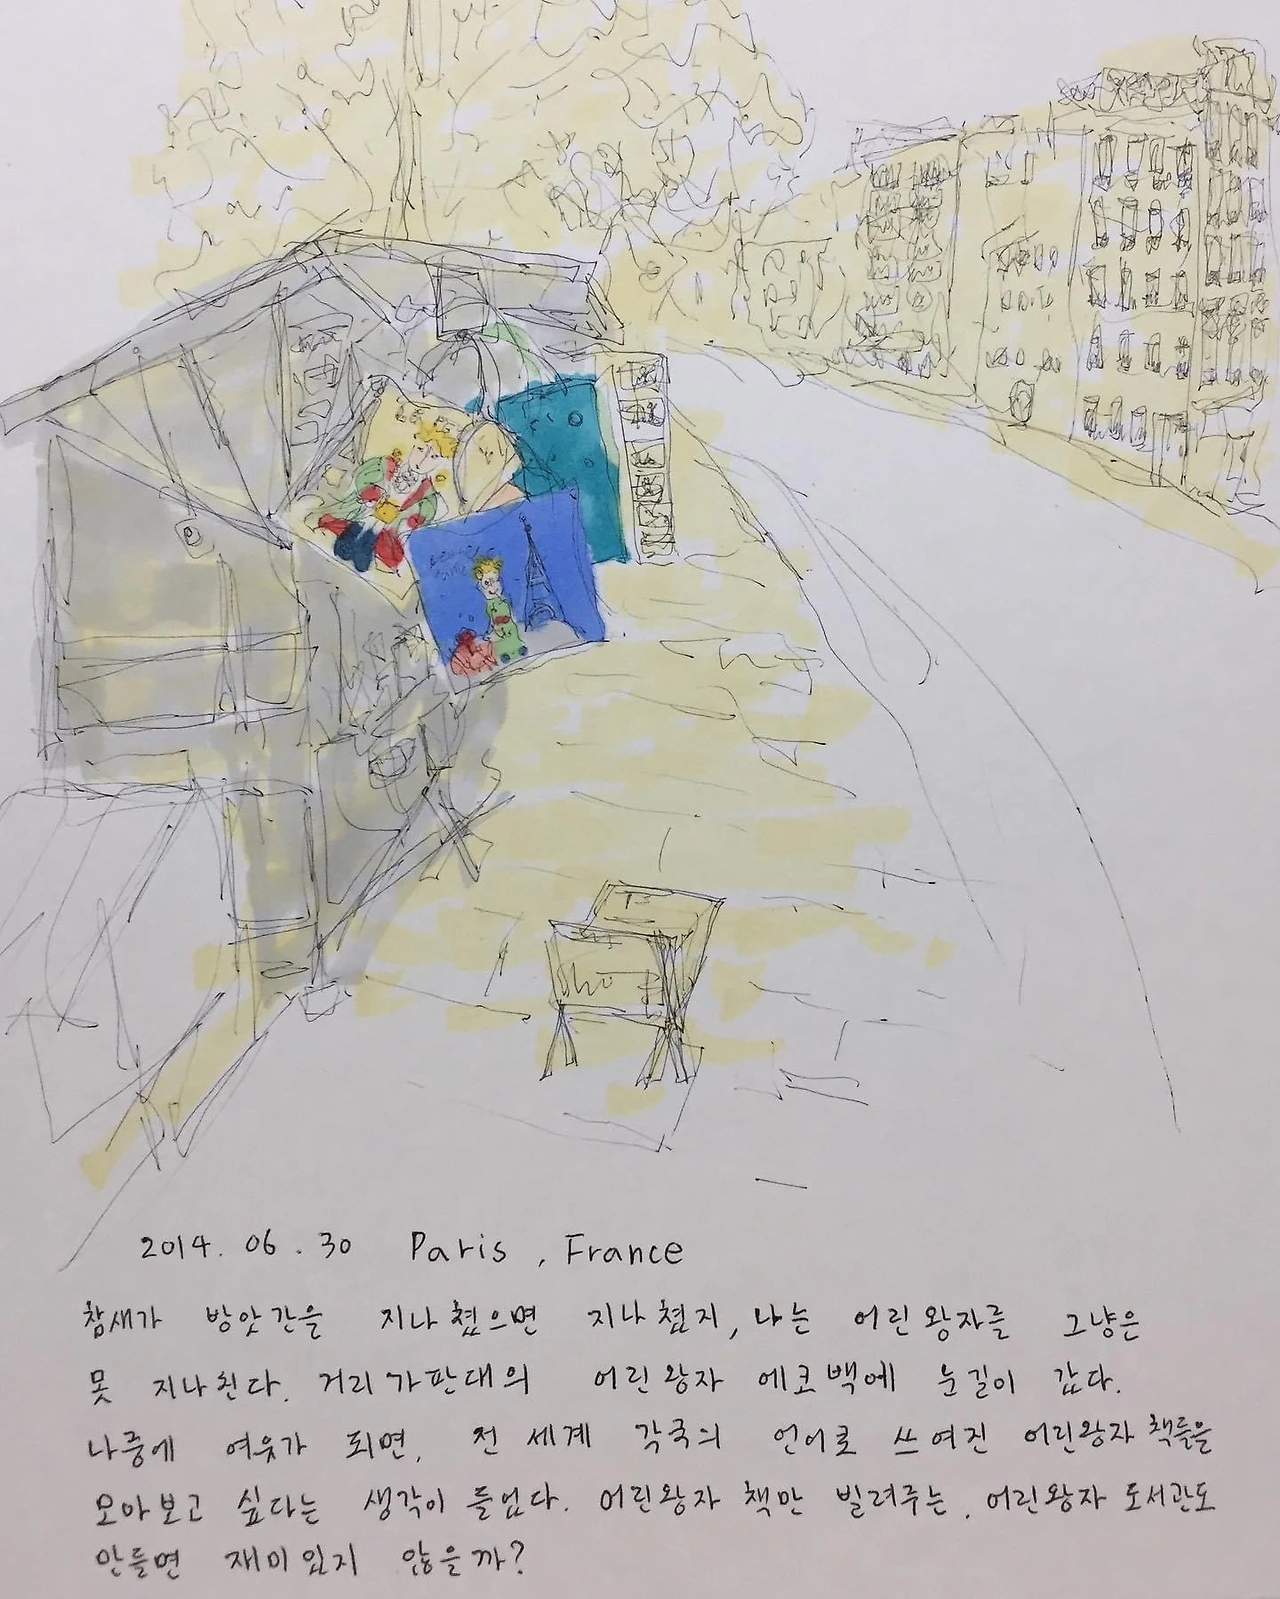 LE PE
Sho
2014. 06. 30 Paris, France
참새가 방앗간을 지나쳤으면 지나쳤지, 나는 어린왕자를 그냥은
못 지나친다. 거리가판대의 어린왕자 에코백에 눈길이 갔다.
나중에 여유가 되면, 전 세계 각국의 언어로 쓰여진 어린왕자 책들을
모아보고 싶다는 생각이 들었다. 어린왕자 책만 빌려주는, 어린왕자 도서관도
만들면 재미있지 않을까?